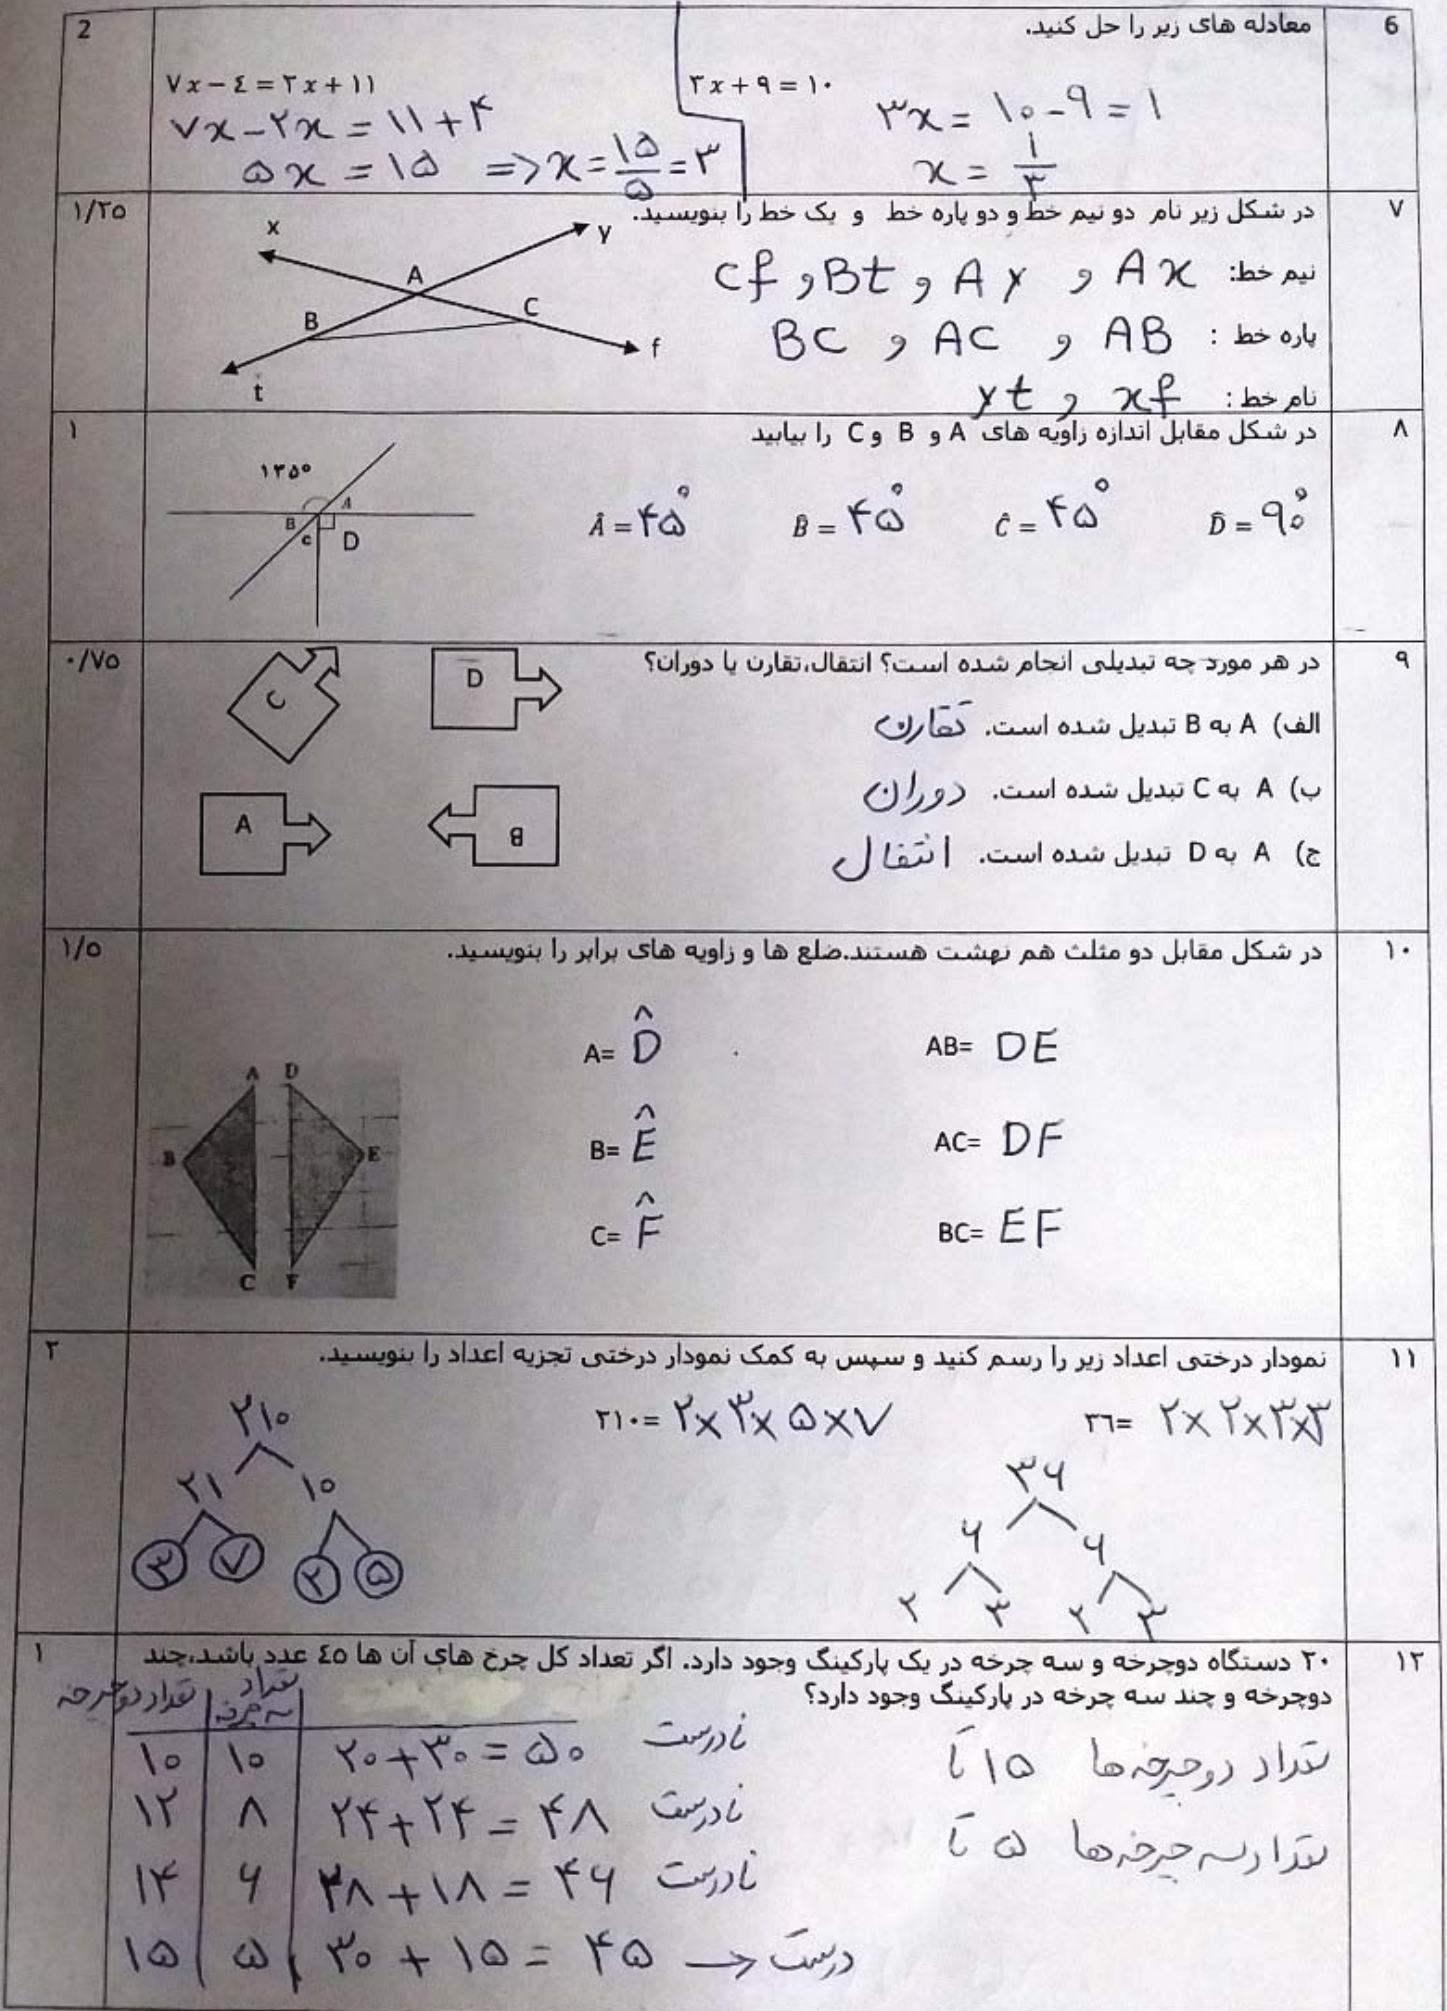 6
معادله های زیر را حل کنید.
2
۳x + ۹ = ۱۰
۳x = ۱۰ - ۹ = ۱
x = ۱/۳
۷x - ٤ = ۲x + ۱۱
۷x - ۲x = ۱۱ + ۴
۵x = ۱۵ => x = ۱۵/۵ = ۳
۷
در شکل زیر نام دو نیم خط و دو پاره خط و یک خط را بنویسید.
۱/۲٥
نیم خط: Ax و Ay و Bt و Cf
پاره خط : AB و AC و BC
نام خط : xf و yt
x
y
A
B
C
f
t
۸
در شکل مقابل اندازه زاویه های A و B و C را بیابید
۱
Â = ۴۵° B̂ = ۴۵° Ĉ = ۴۵° D̂ = ۹۰°
۱۳۵°
A
B
c
D
۹
در هر مورد چه تبدیلی انجام شده است؟ انتقال،تقارن یا دوران؟
۰/۷٥
الف) A به B تبدیل شده است. تقارن
ب) A به C تبدیل شده است. دوران
ج) A به D تبدیل شده است. انتقال
C
D
A
B
۱۰
در شکل مقابل دو مثلث هم نهشت هستند.ضلع ها و زاویه های برابر را بنویسید.
۱/٥
A= D̂ AB= DE
B= Ê AC= DF
C= F̂ BC= EF
A D
B E
C F
۱۱
نمودار درختی اعداد زیر را رسم کنید و سپس به کمک نمودار درختی تجزیه اعداد را بنویسید.
۲
۳٦= ۲×۲×۳×۳
۲۱۰= ۲×۳×۵×۷
۳۶
۶ ۶
۲ ۳ ۲ ۳
۲۱۰
۲۱ ۱۰
۳ ۷ ۲ ۵
۱۲
۲۰ دستگاه دوچرخه و سه چرخه در یک پارکینگ وجود دارد. اگر تعداد کل چرخ های آن ها ٤٥ عدد باشد،چند
دوچرخه و چند سه چرخه در پارکینگ وجود دارد؟
۱
تعداد دوچرخه ها ۱۵ تا
تعداد سه چرخه ها ۵ تا
تعداد دوچرخه | تعداد سه چرخه
۱۰ | ۱۰ | ۲۰+۳۰=۵۰ نادرست
۱۲ | ۸ | ۲۴+۲۴=۴۸ نادرست
۱۴ | ۶ | ۲۸+۱۸=۴۶ نادرست
۱۵ | ۵ | ۳۰+۱۵=۴۵ → درست